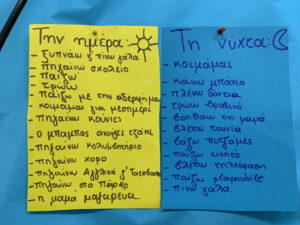 Την ημέρα:
- ξυπνάω ή πίνω γάλα
- πηγαίνω σχολείο
- παίζω
- τρώω
- παίζω με την αδερφή μου
- κοιμάμαι για μεσημέρι
- πηγαίνω
- ο μπαμπάς ανάβει τζάκι
- πηγαίνω κολυμβητήριο
- πηγαίνω χορό
- πηγαίνω Αγγλικά ή
- πηγαίνω στο πάρκο
- η μαμά μαγειρεύει
Τη νύχτα:
- κοιμάμαι
- κάνω μπάνιο
- πλένω δόντια
- τρώω βραδινό
- βοηθάω τη μαμά
- βλέπω ταινία
- βάζω πυτζάμες
- παίζω κινητό
- βλέπω τηλεόραση
- παίζω playmobile
- πίνω γάλα.